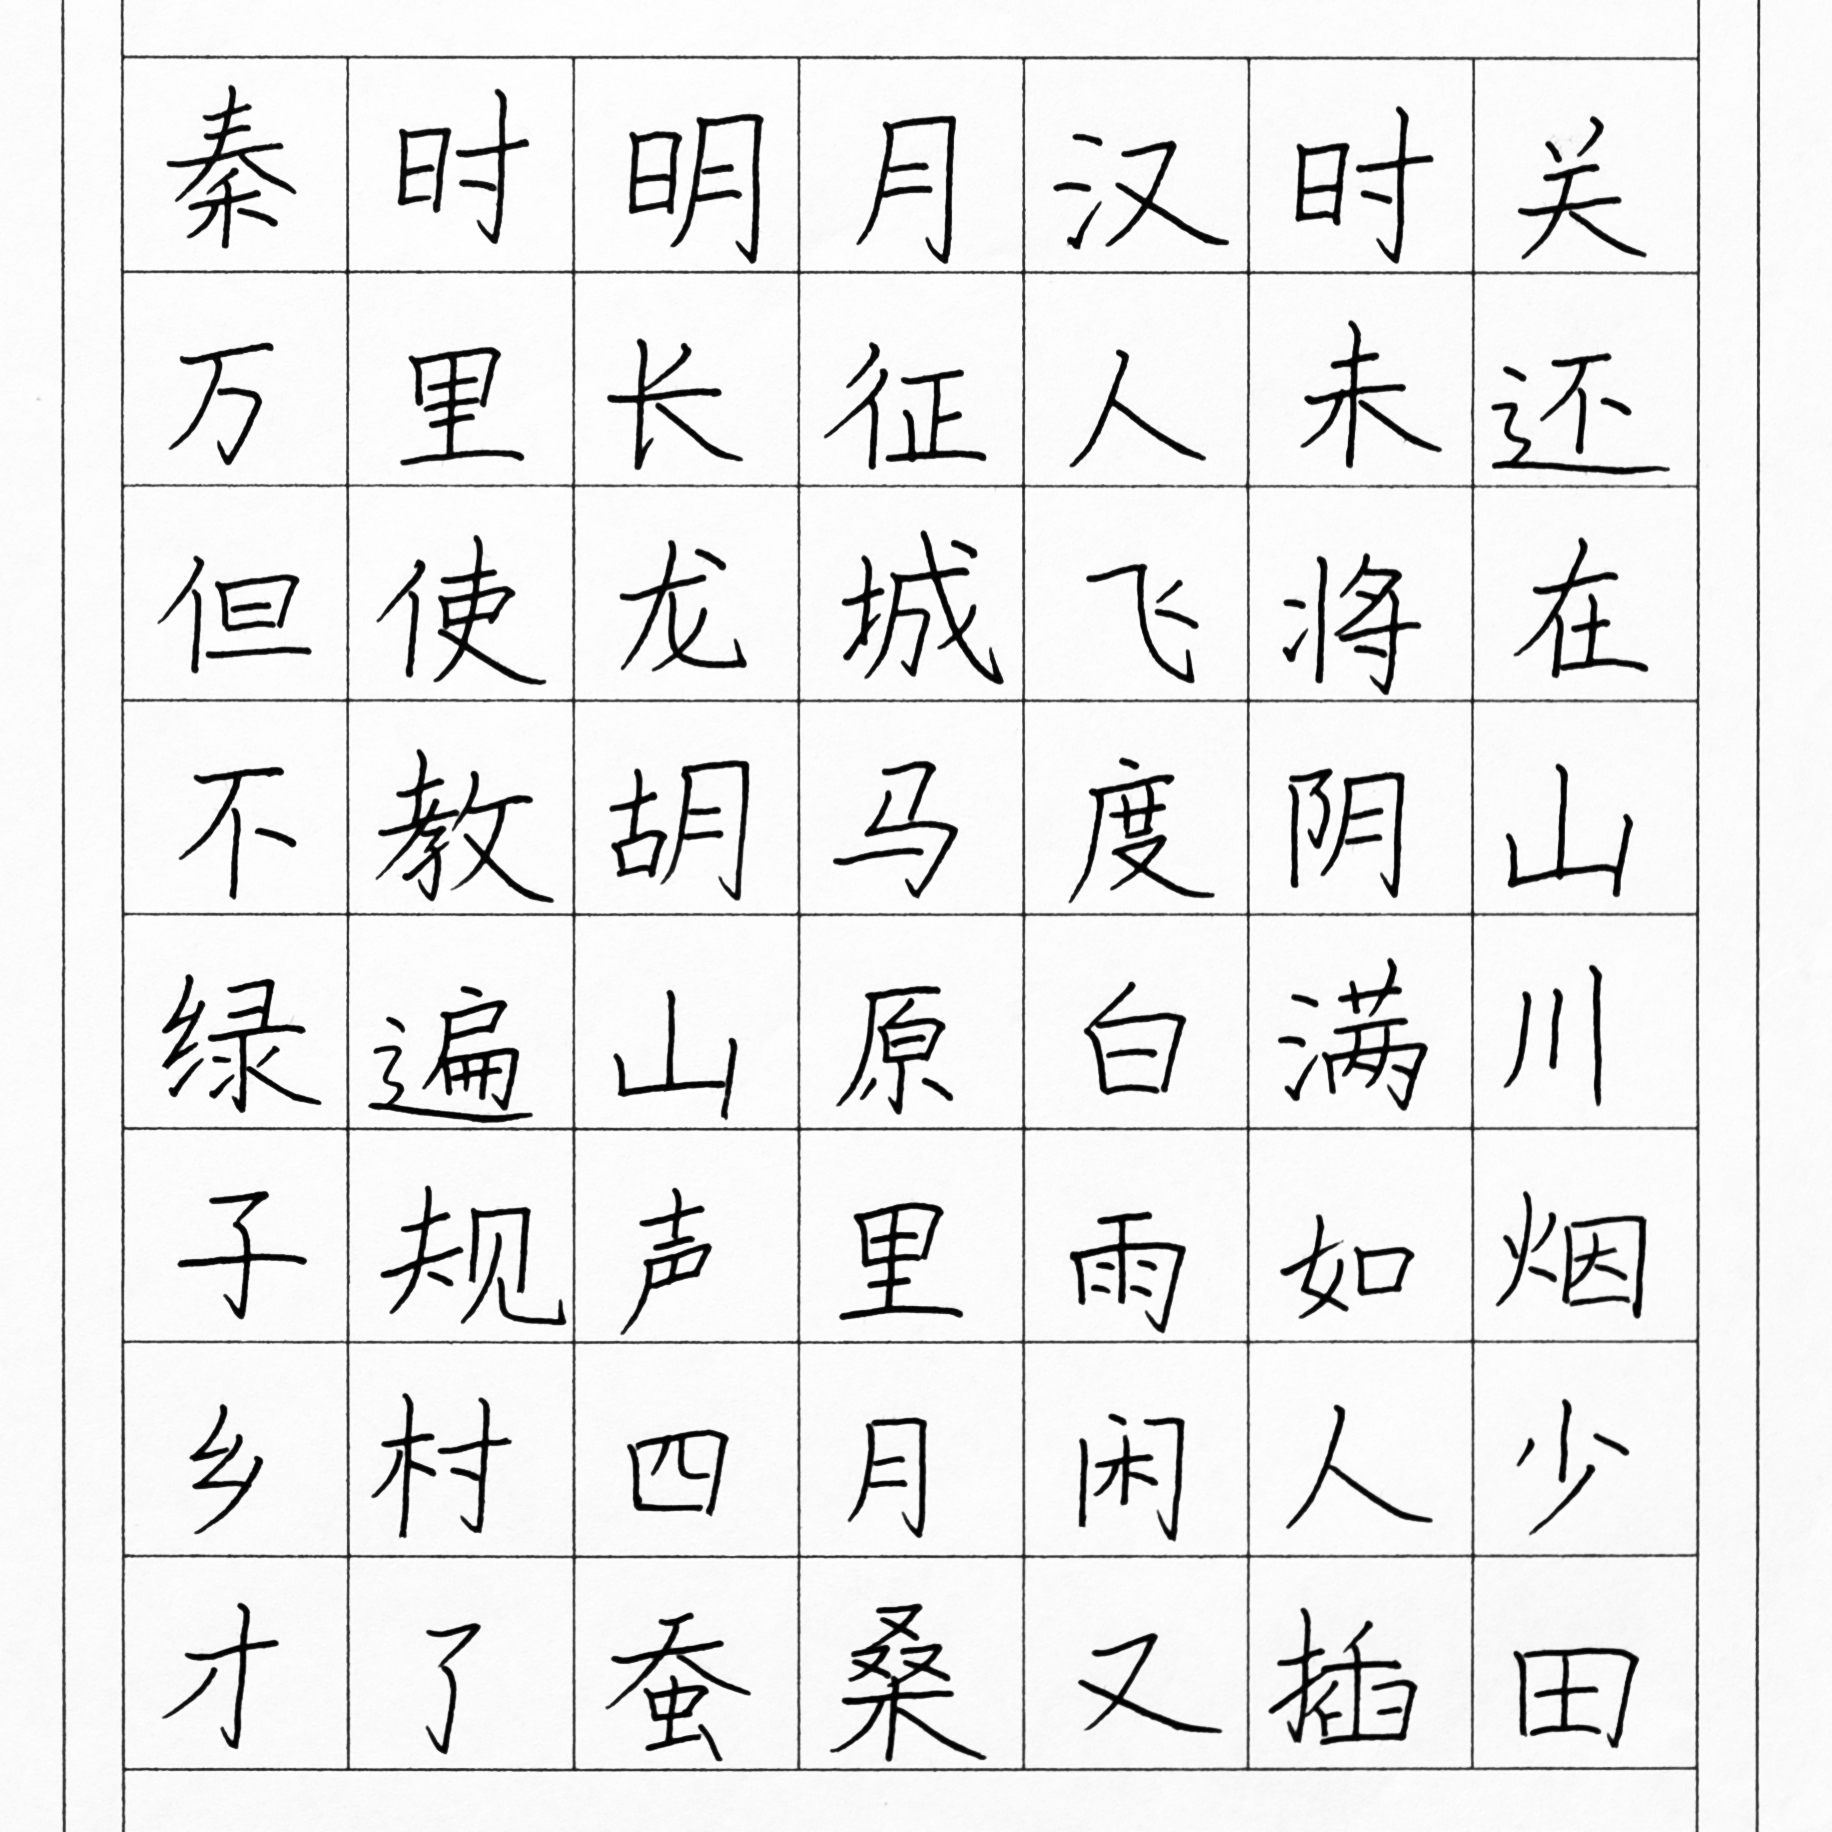 秦时明月汉时关
万里长征人未还
但使龙城飞将在
不教胡马度阴山
绿遍山原白满川
子规声里雨如烟
乡村四月闲人少
才了蚕桑又插田